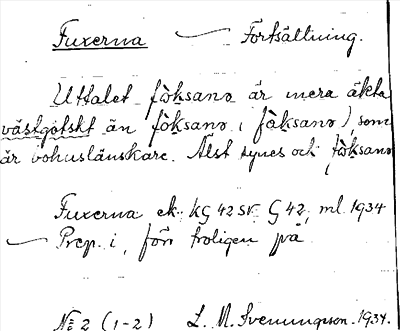 Fuxerna — Fortsättning.
Uttalet fòksanə är mera äkta
västgötskt än fòksanə, (fàksanə), som
är bohuslänskare. Älst synes ock fòksanə
Fuxerna ek. kG 42 SV. G 42, ml. 1934
— Prep. i, förr troligen på
No 2 (1-2) L. M. Svenungson. 1934.